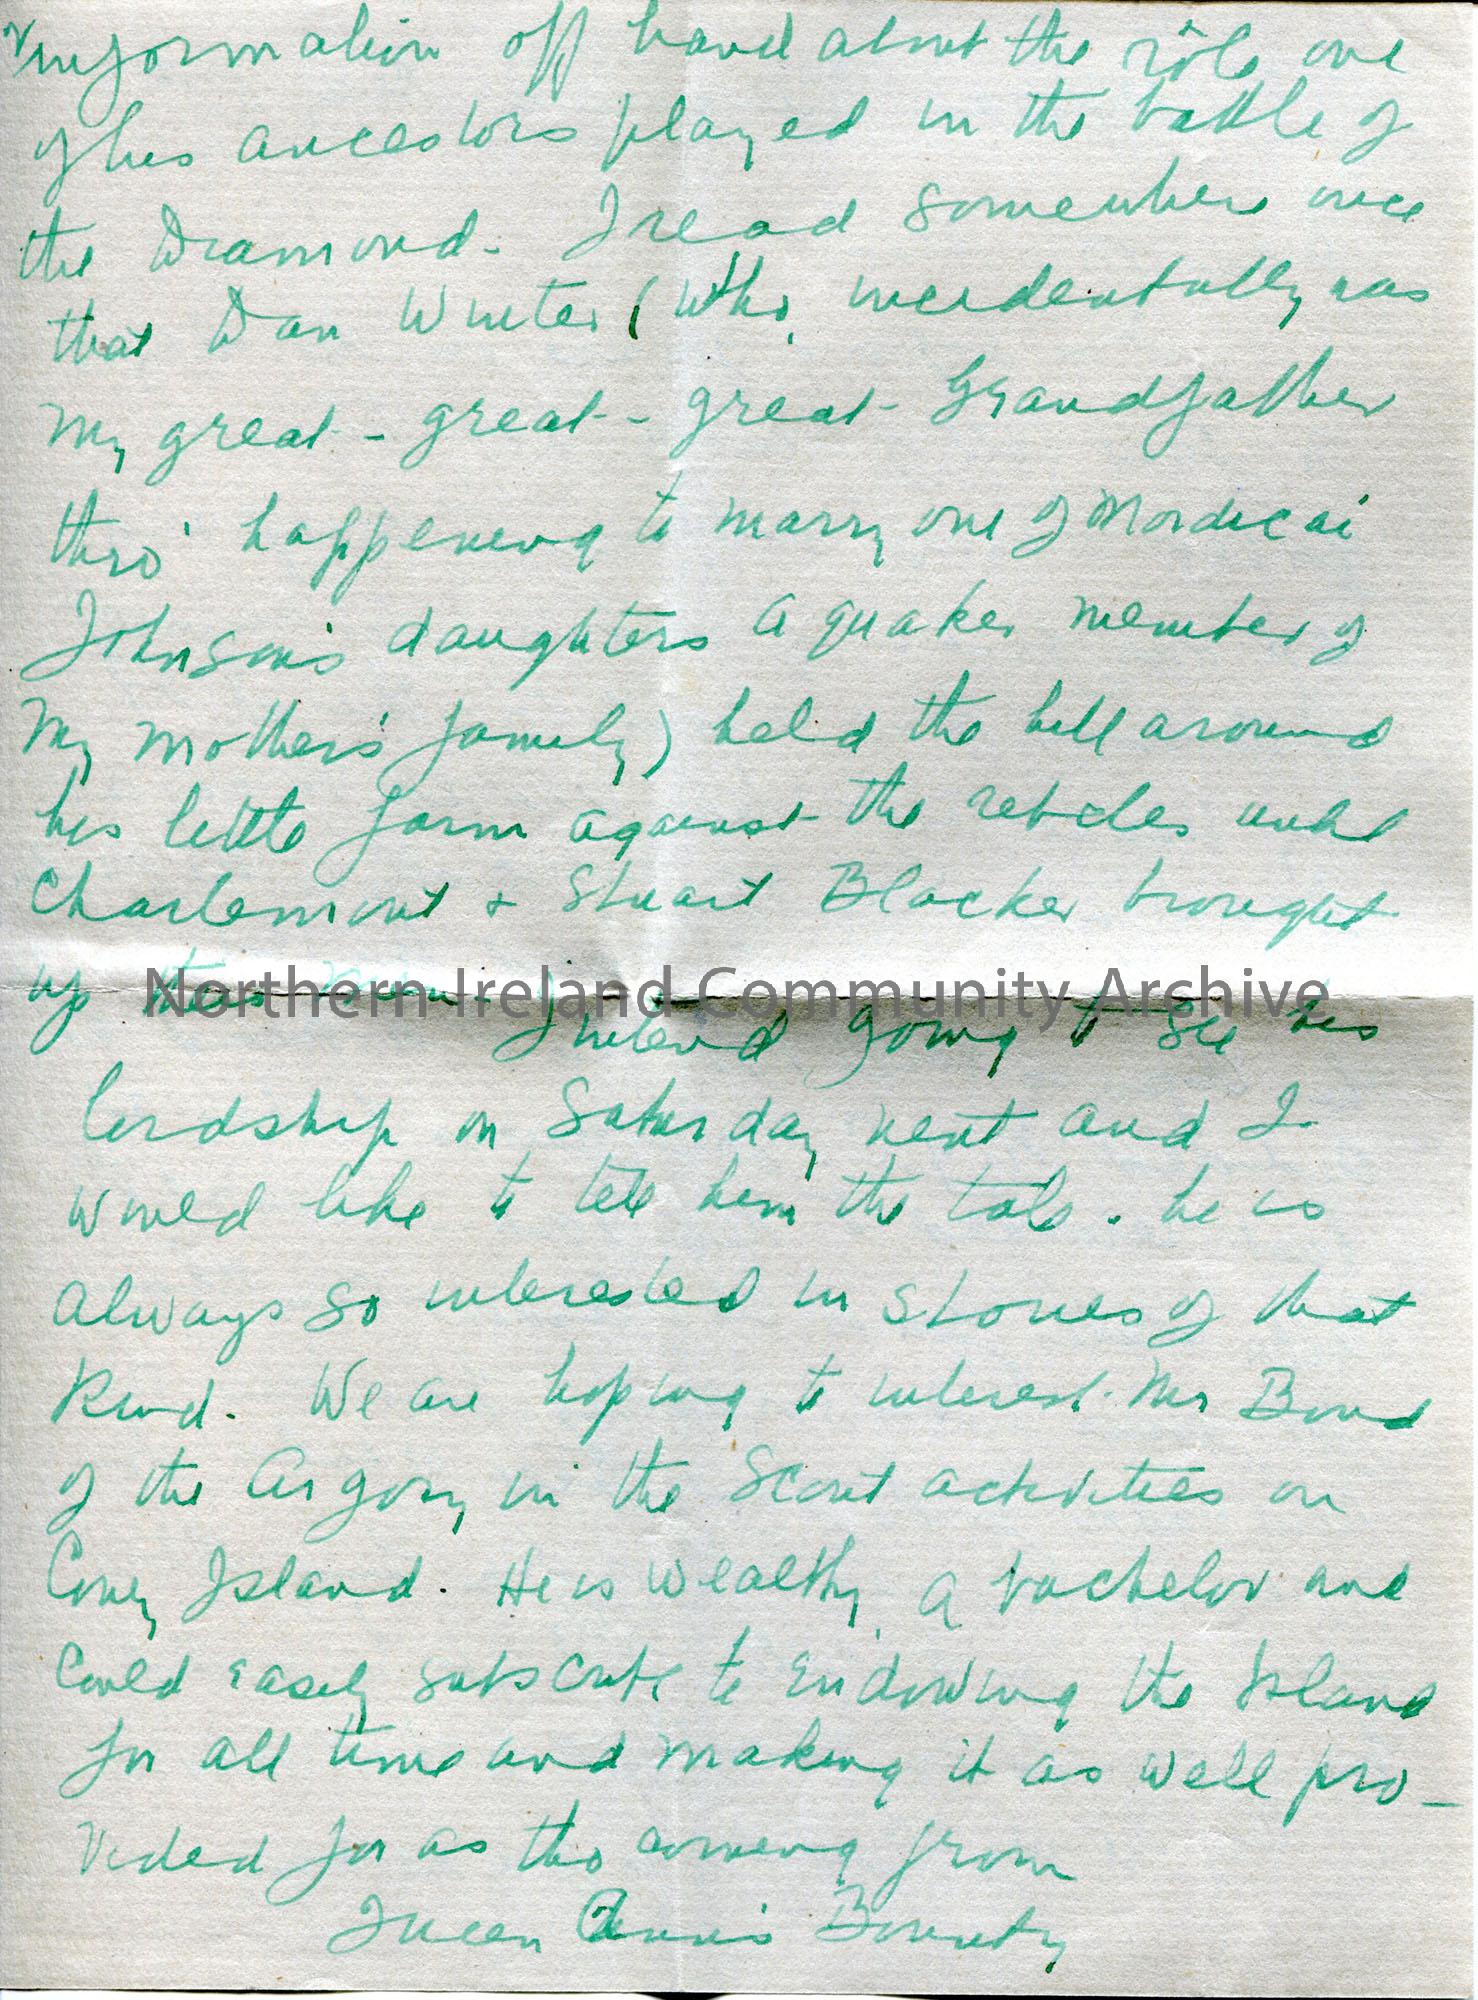 information off hand about the rôle one
of his ancestors played in the battle of
the Diamond. I read somewhere once
that Dan Winter (who, incidentally was
my great-great-great-Grandfather
thro' happening to marry one of Mordecai
Johnson's daughters a quaker member of
my mother's family) held the hill around
his little farm against the rebels until
Charlemont & Stuart Blacker brought
up their men. I intend going to see his
Northern Ireland Community Archive
lordship on Saturday next and I
would like to tell him the tale. he is
always so interested in stories of that
kind. We are hoping to interest Mr Bond
of the Argory in the Scout activities on
Coney Island. He is wealthy, a bachelor and
could easily subscribe to endowing the Island
for all time and making it as well pro-
vided for as tho coming from
Queen Anne's Bounty